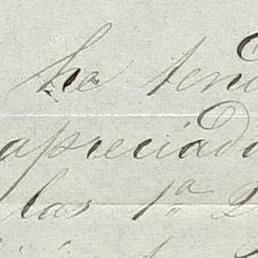 he tend
apreciada
las 1ª